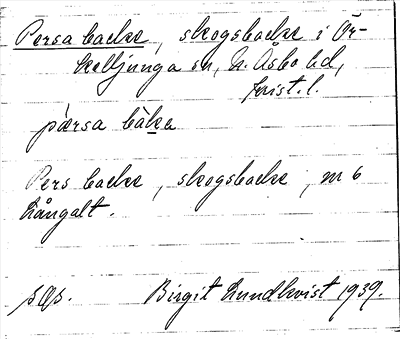 Persa backe, skogsbacke i Ör-
kelljunga sn, N. Åsbo hd,
Krist. l.
pærsa bàka
Pers backe, skogsbacke, m 6
Långalt.
Birgit Lundkvist 1939.